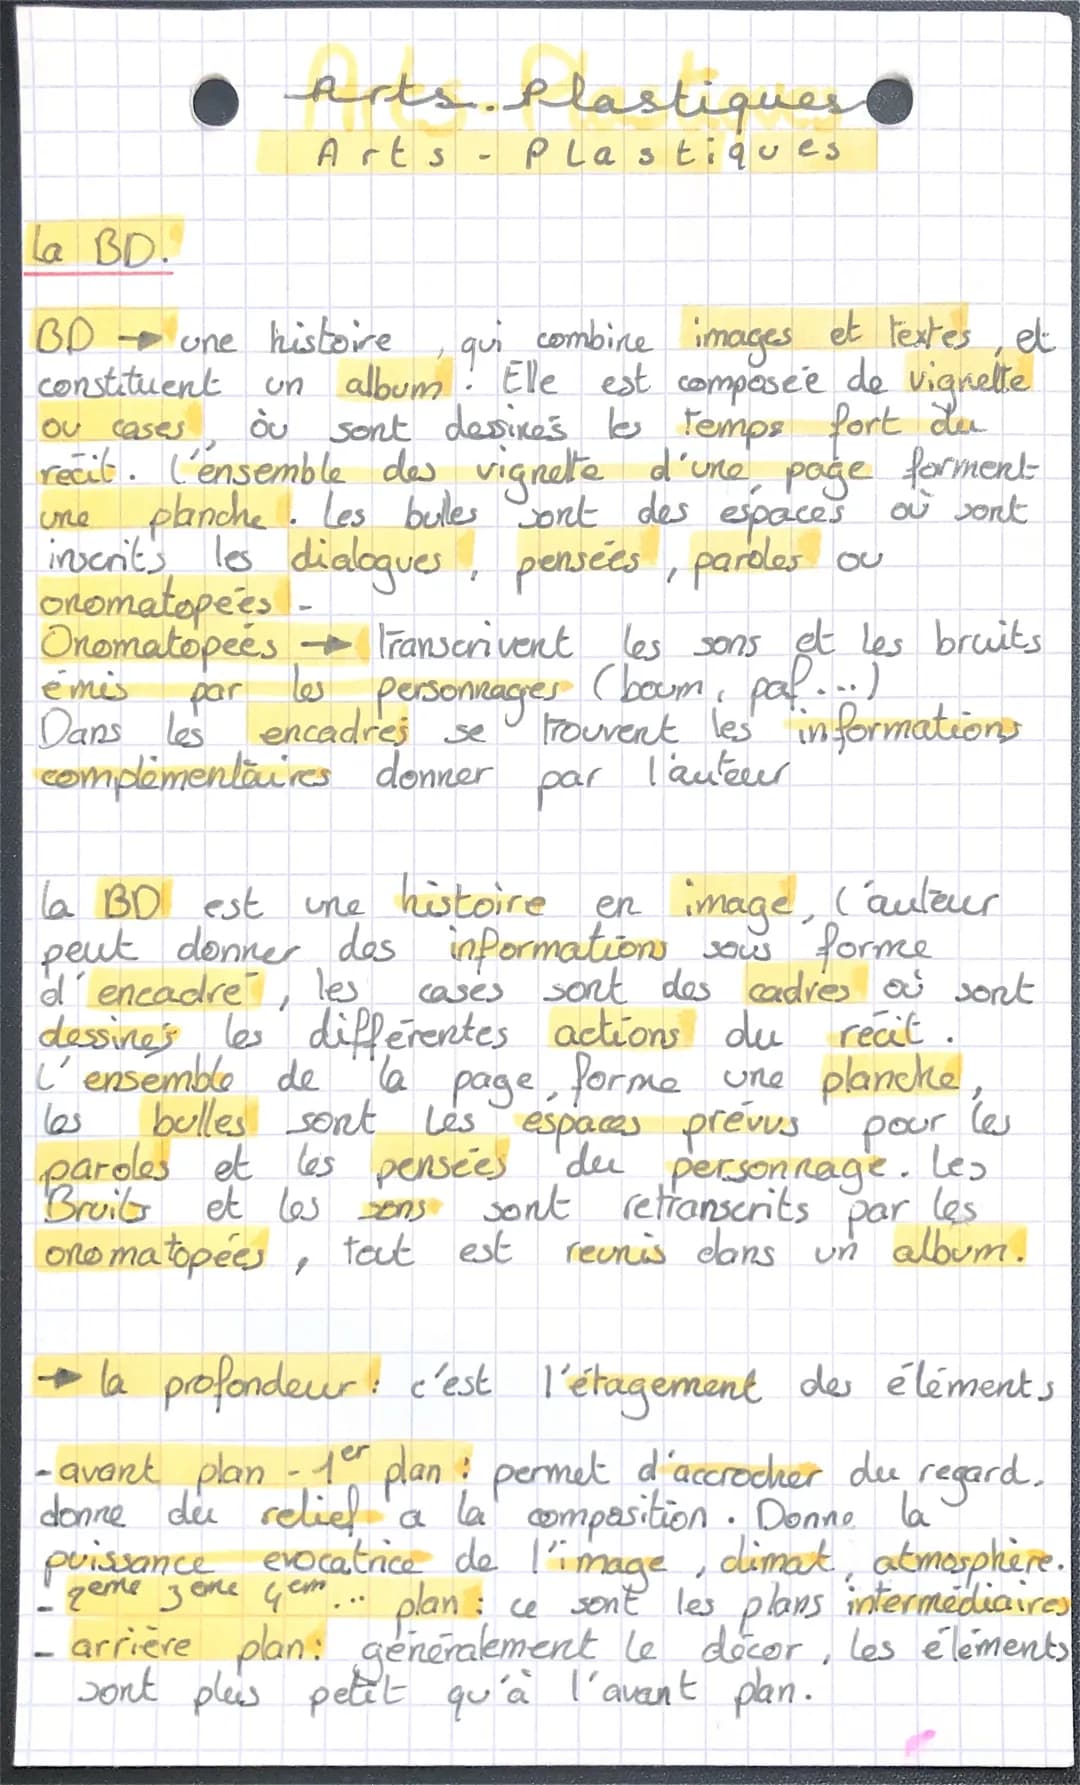 Arts-Plastiques
Arts - Plastiques
la BD.
BD → une histoire, qui combine images et textes, et
constituent un album. Elle est composée de vignette
ou cases, où sont dessinés les temps fort du
récit. l'énsemble des vignette d'une page forment
une planche. les bulles sont des espaces où sont
inscrits les dialogues, pensées, paroles ou
onomatopées -
Onomatopées → Transcrivent les sons et les bruits
émis par les personnages (boum, paf...)
Dans les encadrés se trouvent les informations
complémentaires donner par l'auteur
la BD est une histoire en image, l'auteur
peut donner des informations sous forme
d'encadré, les cases sont des cadres où sont
dessinés les différentes actions du récit.
L'ensemble de la page, forme une planche,
les bulles sont les espaces prévus pour les
paroles et les pensées du personnage. Les
Bruits et les sons sont retranscrits par les
onomatopées, tout est reunis dans un album.
→ la profondeur : c'est l'étagement des éléments
- avant plan - 1er plan : permet d'accrocher du regard.
donne du relief a la composition. Donne la
puissance evocatrice de l'image, climat, atmosphère.
- 2eme 3eme 4em... plan : ce sont les plans intermédiaires
- arrière plan : généralement le décor, les éléments
sont plus petit qu'à l'avant plan.